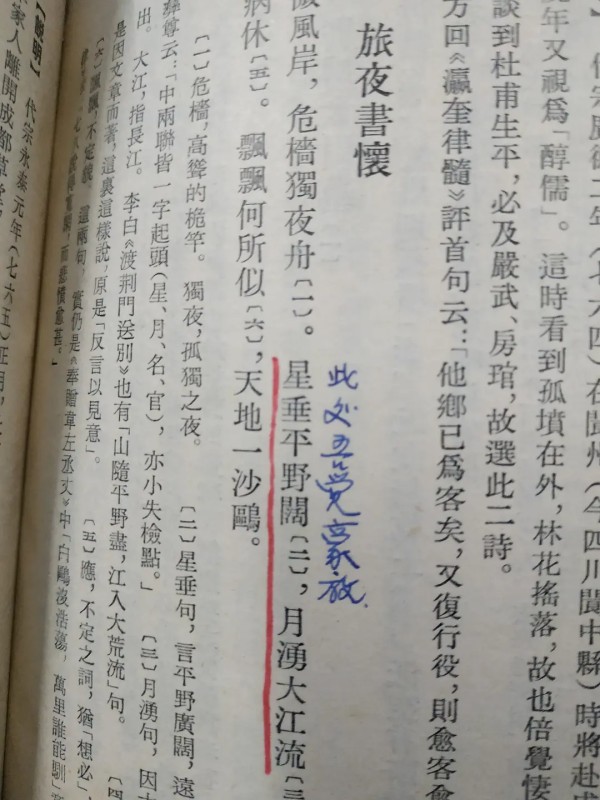 宗廣德二年（七六四）在閬州（今四川閬中縣）時將赴成
年又視爲「醇儒」。這時看到孤墳在外，林花搖落，故也倍覺悽
談到杜甫生平，必及嚴武、房琯，故選此二詩。
方回《瀛奎律髓》評首句云：「他鄉已爲客矣，又復行役，則愈客愈
旅夜書懷
此处觉豪放.
微風岸，危檣獨夜舟〔一〕。星垂平野闊〔二〕，月湧大江流〔三
病休〔五〕。飄飄何所似〔六〕，天地一沙鷗。
〔一〕危檣，高聳的桅竿。獨夜，孤獨之夜。〔二〕星垂句，言平野廣闊，遠
尊云：「中兩聯皆一字起頭（星、月、名、官），亦小失檢點。」〔三〕月湧句，因大
出。大江，指長江。李白《渡荆門送別》也有「山隨平野盡，江入大荒流」句。
是因文章而著，這裏這樣說，原是「反言以見意」。〔五〕應，不定之詞，猶「想必」，
〔六〕飄飄，不定貌。這兩句，實仍是《奉贈韋左丞丈》中「白鷗沒浩蕩，萬里誰能馴」
而悲憤愈甚。」
【說明】代宗永泰元年（七六五）正月，
家人離開成都草堂，